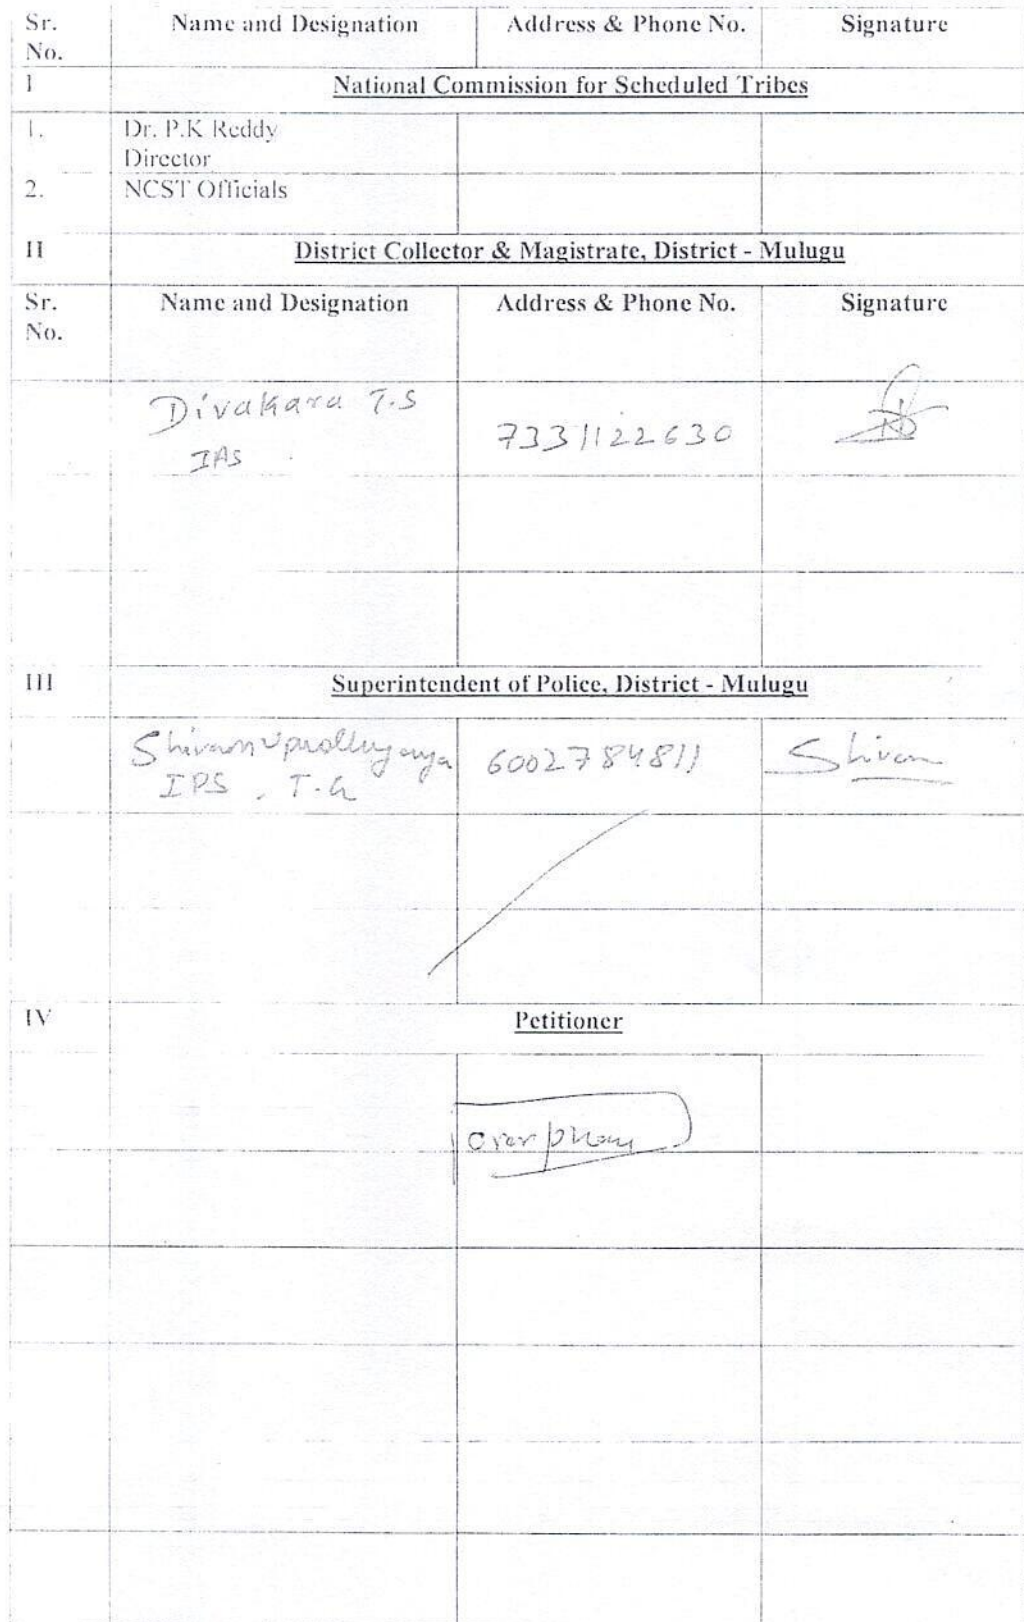 Sr. No. Name and Designation Address & Phone No. Signature
I National Commission for Scheduled Tribes
1. Dr. P.K Reddy
Director
2. NCST Officials
II District Collector & Magistrate, District - Mulugu
Sr. No. Name and Designation Address & Phone No. Signature
Divakara T.S
IAS
7331122630
III Superintendent of Police, District - Mulugu
6002784811 Shivam
IPS, T.G
IV Petitioner
over phone